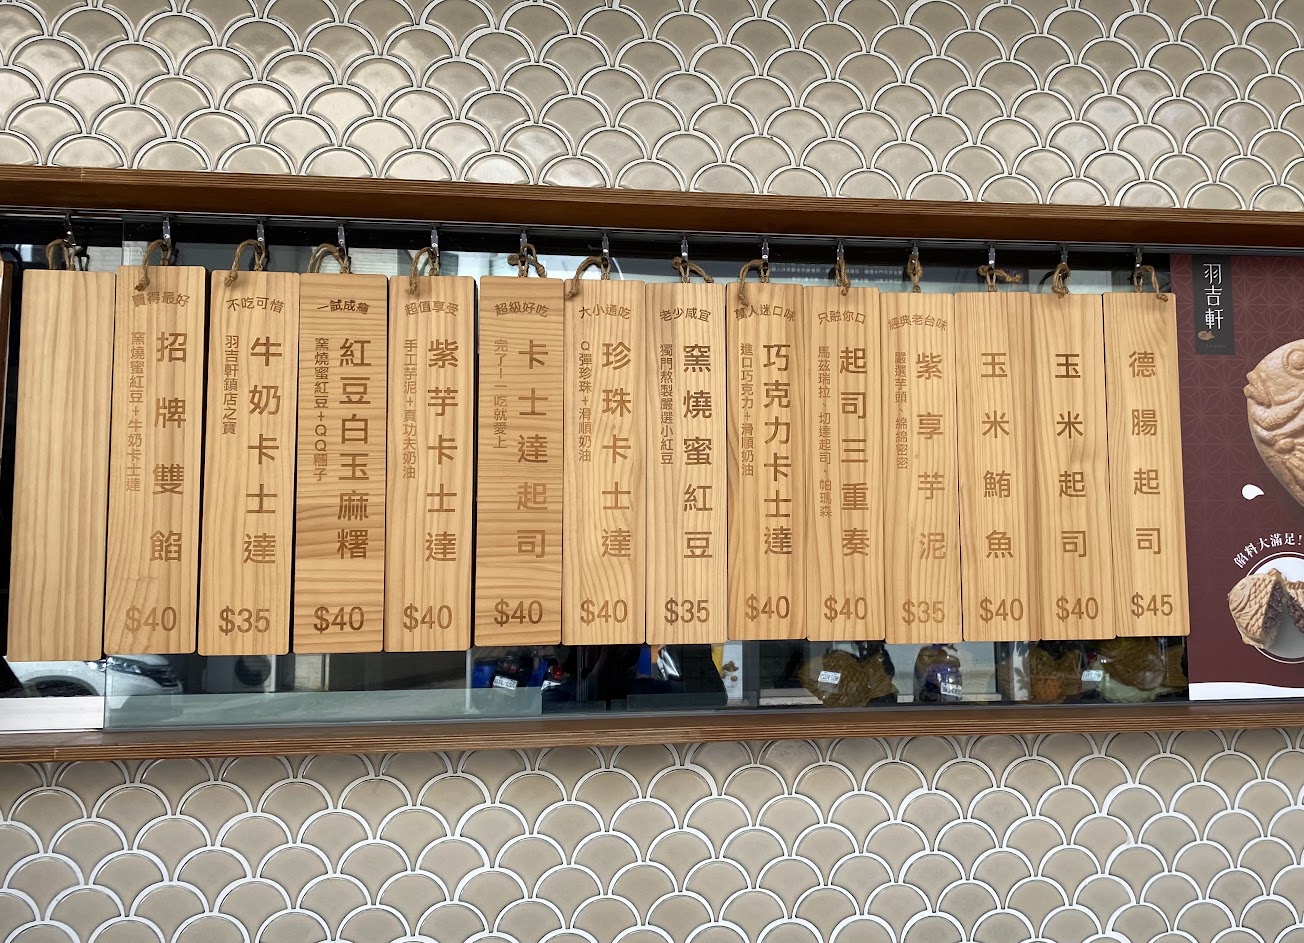 賣得最好
招牌雙餡
窯燒蜜紅豆+牛奶卡士達
$40
不吃可惜
牛奶卡士達
羽吉軒鎮店之寶
$35
一試成癮
紅豆白玉麻糬
窯燒蜜紅豆+QQ糯子
$40
超值享受
紫芋卡士達
手工芋泥+真功夫奶油
$40
超級好吃
卡士達起司
完了!一吃就愛上
$40
大小通吃
珍珠卡士達
Q彈珍珠+滑順奶油
$40
老少咸宜
窯燒蜜紅豆
獨門熬製嚴選小紅豆
$35
萬人迷口味
巧克力卡士達
進口巧克力+滑順奶油
$40
只融你口
起司三重奏
馬茲瑞拉、切達起司、帕瑪森
$40
經典老台味
紫享芋泥
嚴選芋頭、綿綿密密
$35
玉米鮪魚
$40
玉米起司
$40
德腸起司
$45
羽吉軒
餡料大滿足!